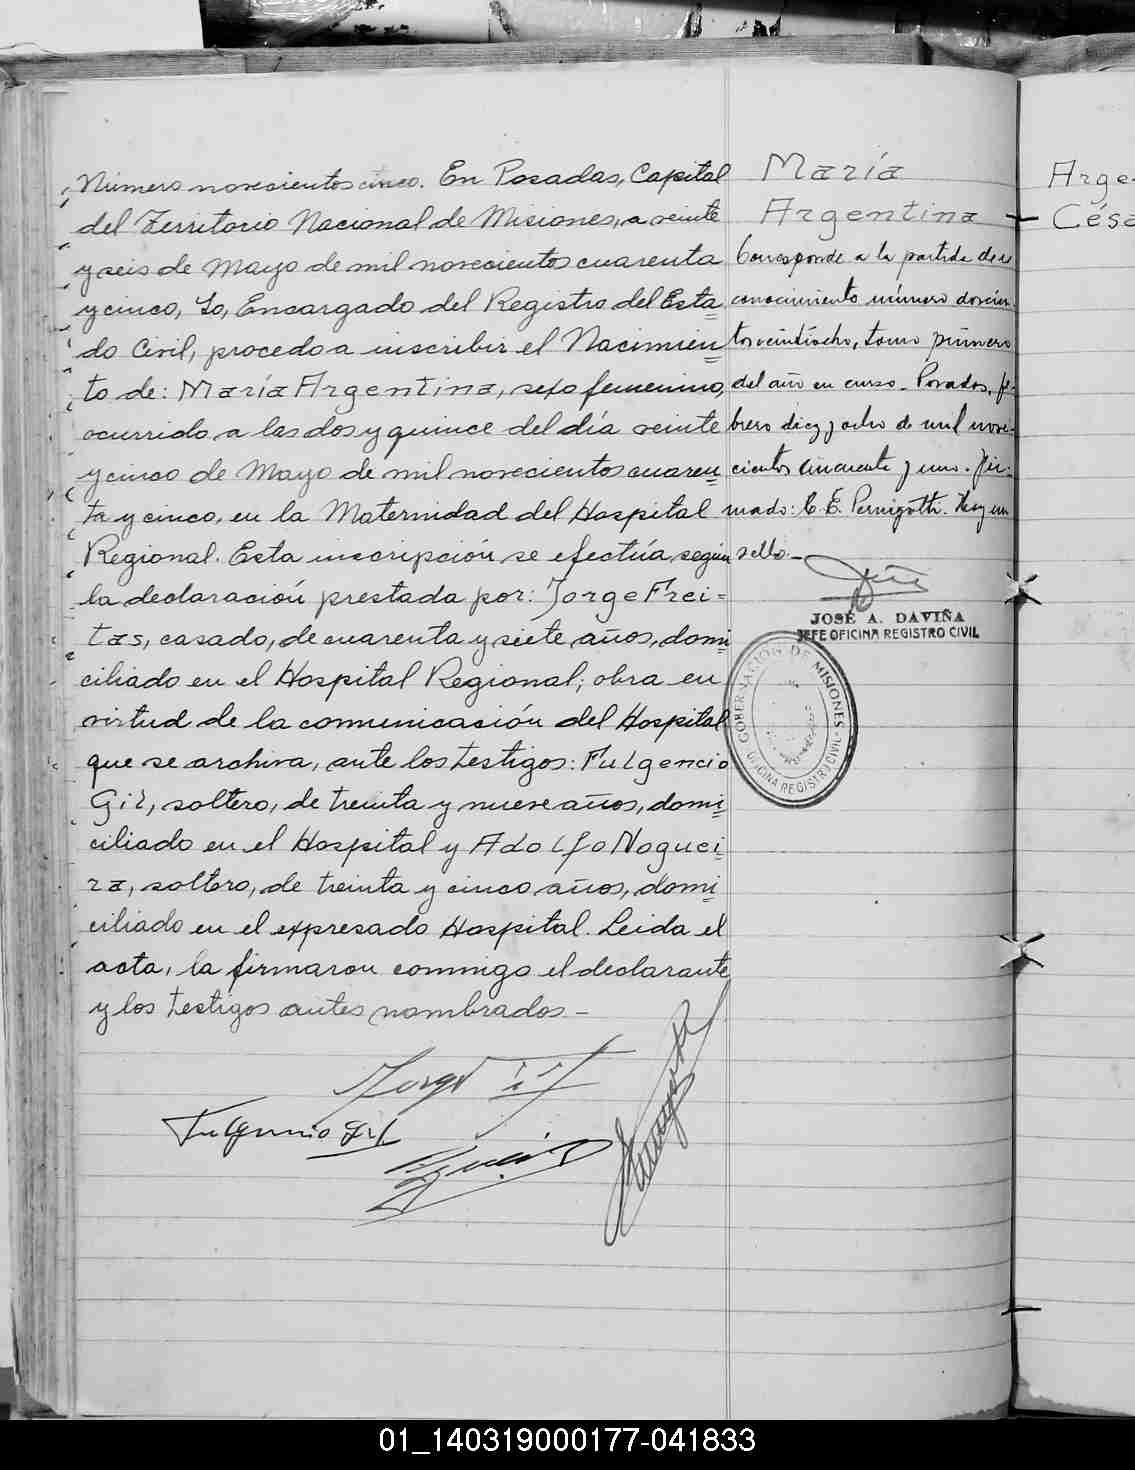 Número novecientos cinco. En Posadas, Capital
del Territorio Nacional de Misiones, a veinte
y seis de Mayo de mil novecientos cuarenta
y cinco, Yo, Encargado del Registro del Esta
do Civil, procedo a inscribir el Nacimien
to de: María Argentina, sexo femenino,
ocurrido a las dos y quince del día veinte
y cinco de Mayo de mil novecientos cuaren
ta y cinco, en la Maternidad del Hospital
Regional. Esta inscripción se efectúa según
la declaración prestada por: Jorge Frei=
tas, casado, de cuarenta y siete años, domi
ciliado en el Hospital Regional; obra en
virtud de la comunicasión del Hospital
que se archiva, ante los testigos: Fulgencio
Gil, soltero, de treinta y nueve años, domi
ciliado en el Hospital y Adolfo Noguei
ra, soltero, de treinta y cinco años, domi
ciliado en el expresado Hospital. Leida el
acta, la firmaron conmigo el declarante
y los testigos antes nombrados.-
Jorge
Fulgencio Gil
María
Argentina
Corresponde a la partida de re
conocimiento número doscien
tos veintiocho, tomo primero
del año en curso. Posadas, fe
brero diez y ocho de mil nove-
cientos cincuenta y uno. Fir-
mado: C. E. Pernigotti. Hay un
sello.-
JOSÉ A. DAVIÑA
JEFE OFICINA REGISTRO CIVIL
GOBERNACIÓN DE MISIONES
OFICINA REGISTRO CIVIL
Arge-
Césa
01_140319000177-041833